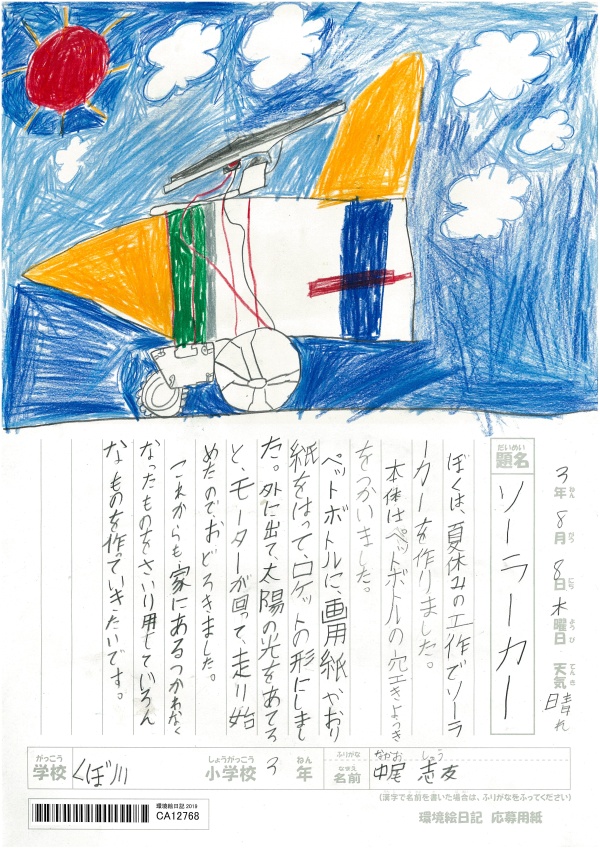 3年 8月 8日 木曜日 天気 晴れ
ねん がつ にち ようび てんき
だいめい
題名
ソーラーカー
ぼくは、夏休みの工作でソーラ
ーカーを作りました。
本体はペットボトルの空きようき
をつかいました。
ペットボトルに、画用紙やおり
紙をはってロケットの形にしまし
た。外に出て、太陽の光をあてる
と、モーターが回って、走り始
めたのでおどろきました。
これからも、家にあるつかわなく
なったものをさいり用していろん
なものを作っていきたいです。
がっこう しょうがっこう ねん ふりがな なかお しょう
学校 くぼ川 小学校 3 年 なまえ 名前 中尾 志友
(漢字で名前を書いた場合は、ふりがなをふってください)
環境絵日記 応募用紙
環境絵日記 2019
CA12768